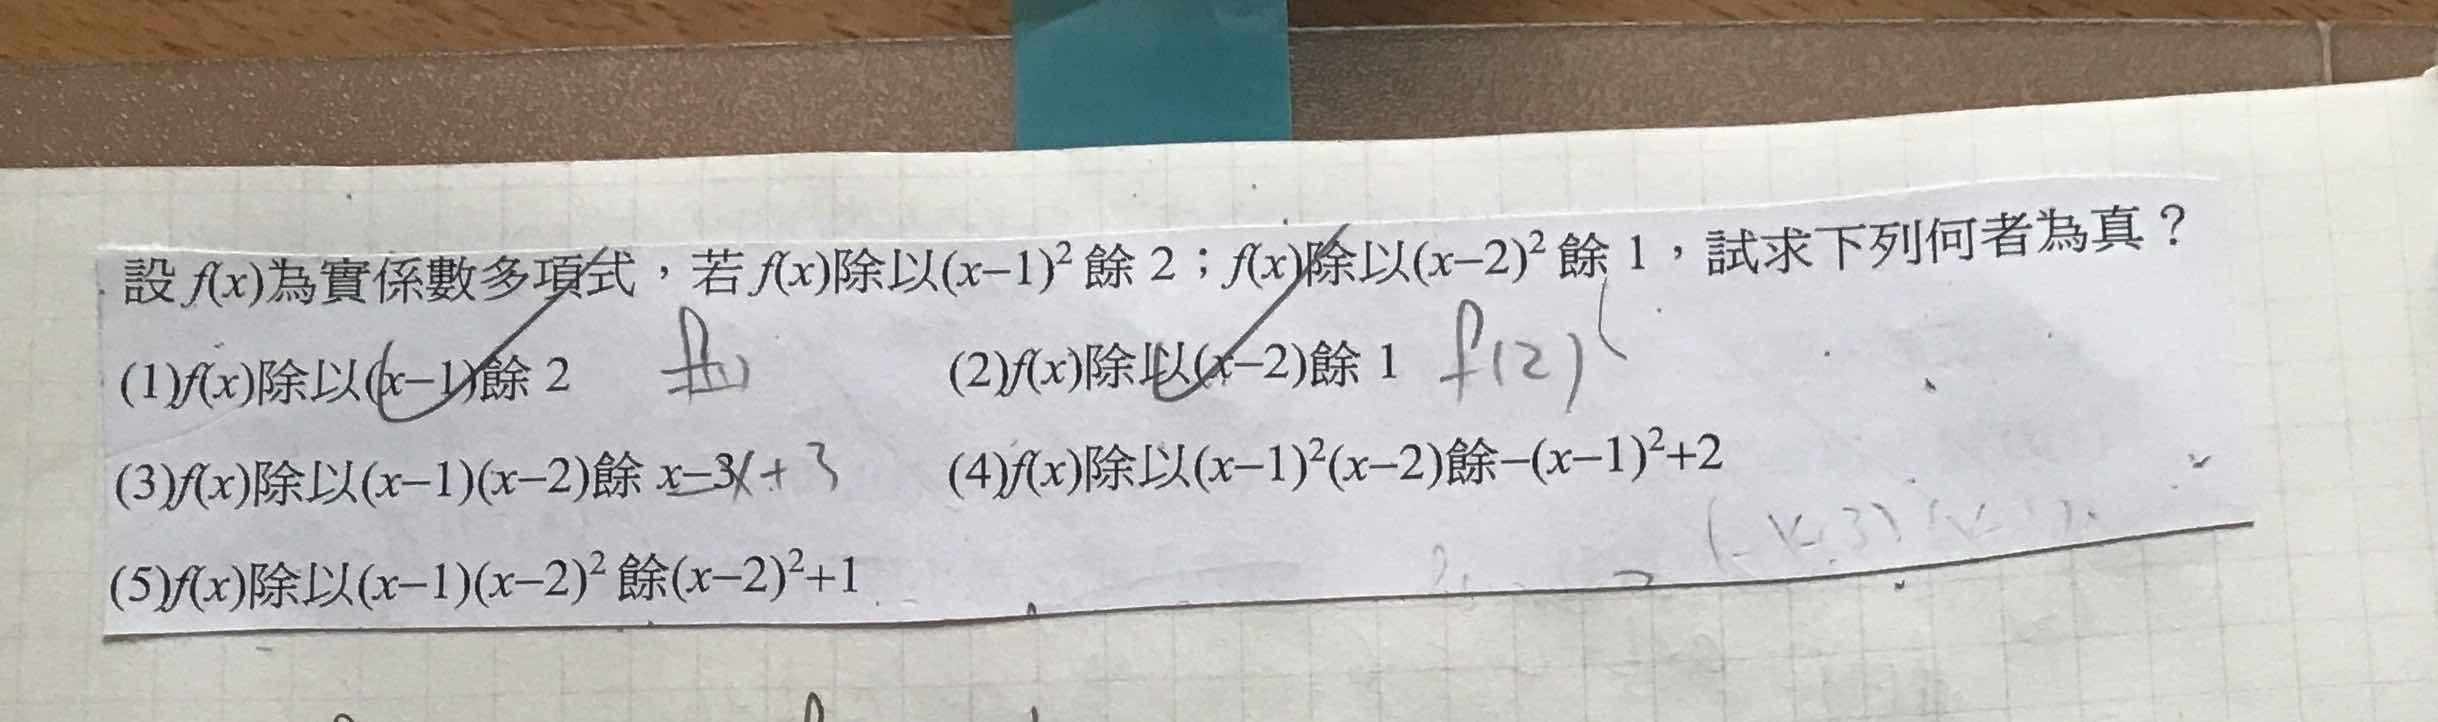 設 f(x)為實係數多項式，若 f(x)除以(x−1)² 餘 2；f(x)除以(x−2)² 餘 1，試求下列何者為真？
(1)f(x)除以(x−1)餘 2 f(1) (2)f(x)除以(x−2)餘 1 f(2)
(3)f(x)除以(x−1)(x−2)餘 x−3 x+3 (4)f(x)除以(x−1)²(x−2)餘−(x−1)²+2
(5)f(x)除以(x−1)(x−2)² 餘(x−2)²+1